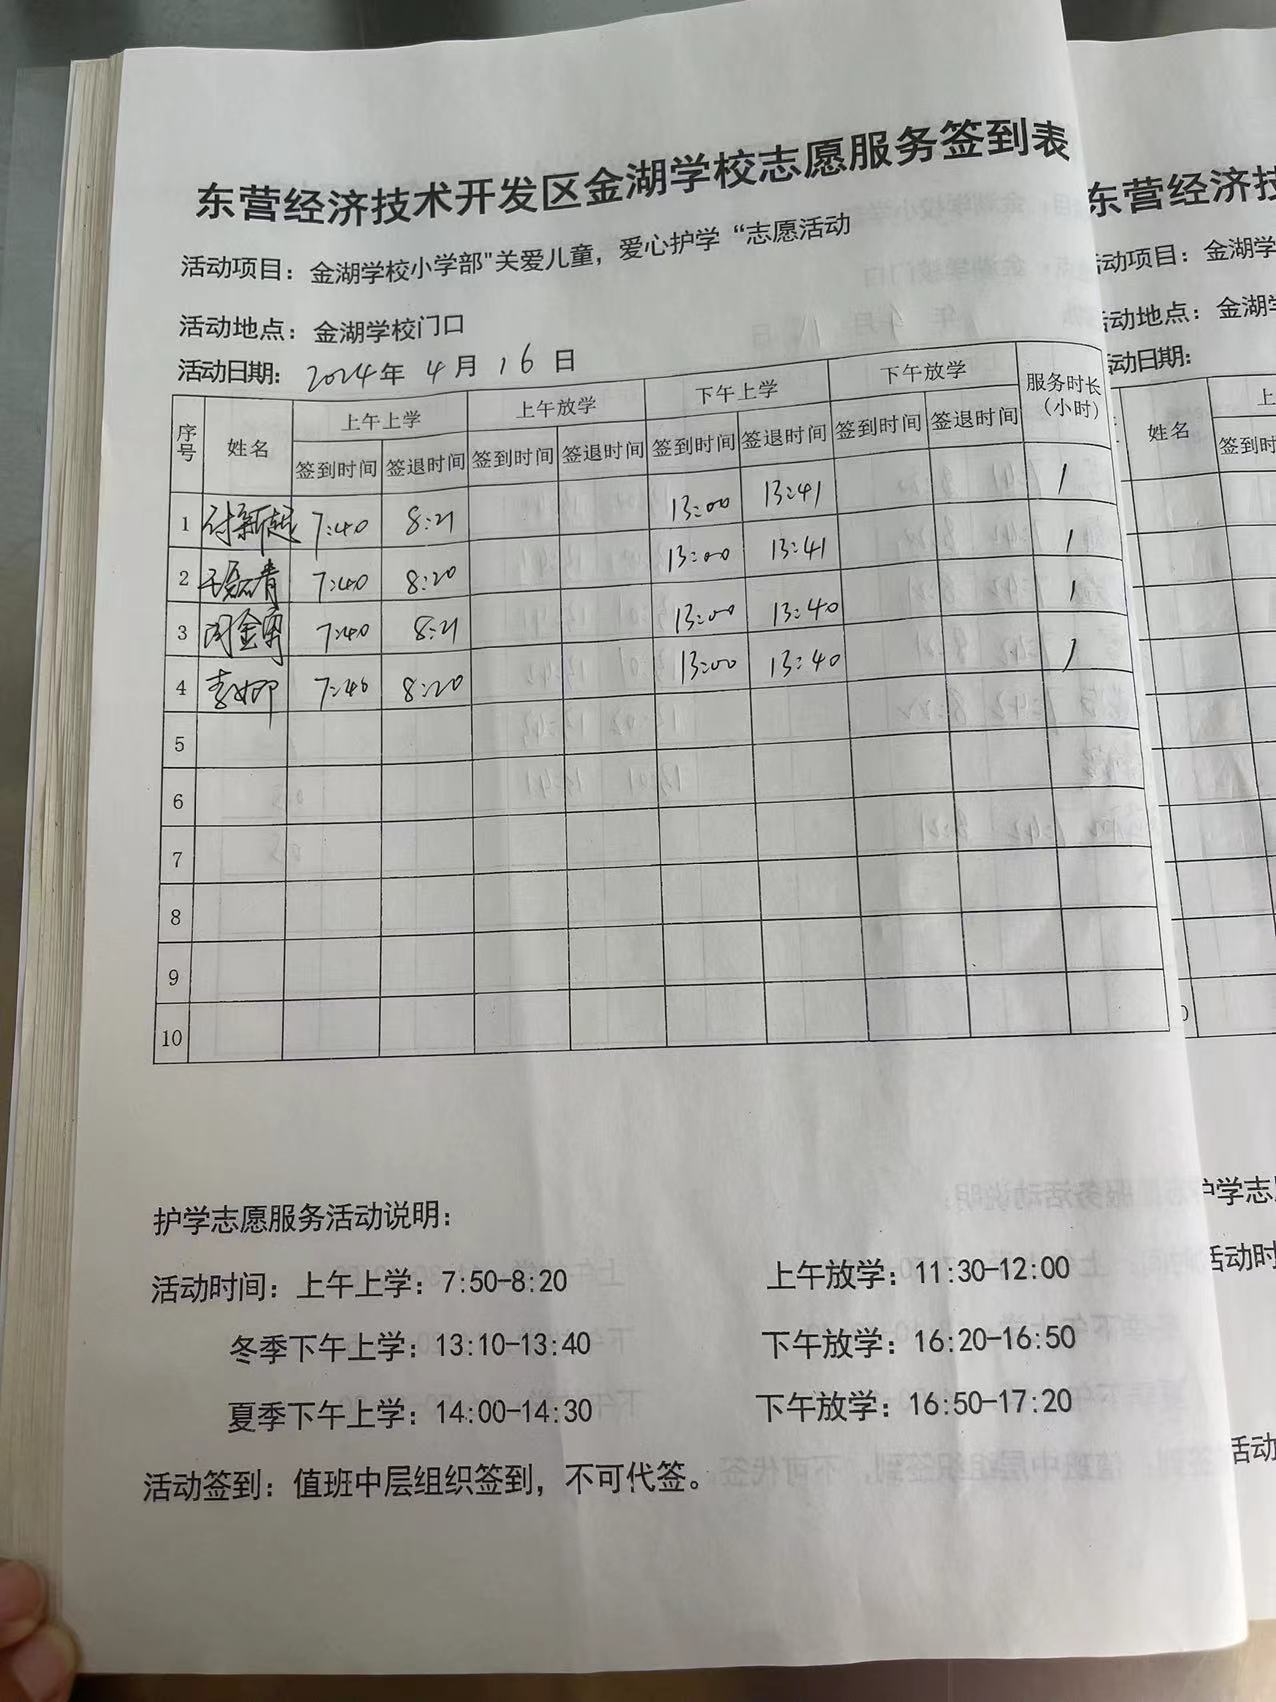 东营经济技术开发区金湖学校志愿服务签到表
活动项目：金湖学校小学部"关爱儿童，爱心护学“志愿活动
活动地点：金湖学校门口
活动日期：2024年 4月 16日
序号 姓名 上午上学 上午放学 下午上学 下午放学 服务时长（小时）
签到时间 签退时间 签到时间 签退时间 签到时间 签退时间 签到时间 签退时间
1 付新起 7:40 8:21 13:00 13:41 1
2 青 7:40 8:20 13:00 13:41 1
3 周金 7:40 8:21 13:00 13:40 1
4 李 7:40 8:20 13:00 13:40 1
5
6
7
8
9
10
护学志愿服务活动说明：
活动时间：上午上学：7:50-8:20 上午放学：11:30-12:00
冬季下午上学：13:10-13:40 下午放学：16:20-16:50
夏季下午上学：14:00-14:30 下午放学：16:50-17:20
活动签到：值班中层组织签到，不可代签。
东营经济技
动项目：金湖学
活动地点：金湖
动日期：
姓名
签到时
护学志
活动时
活动